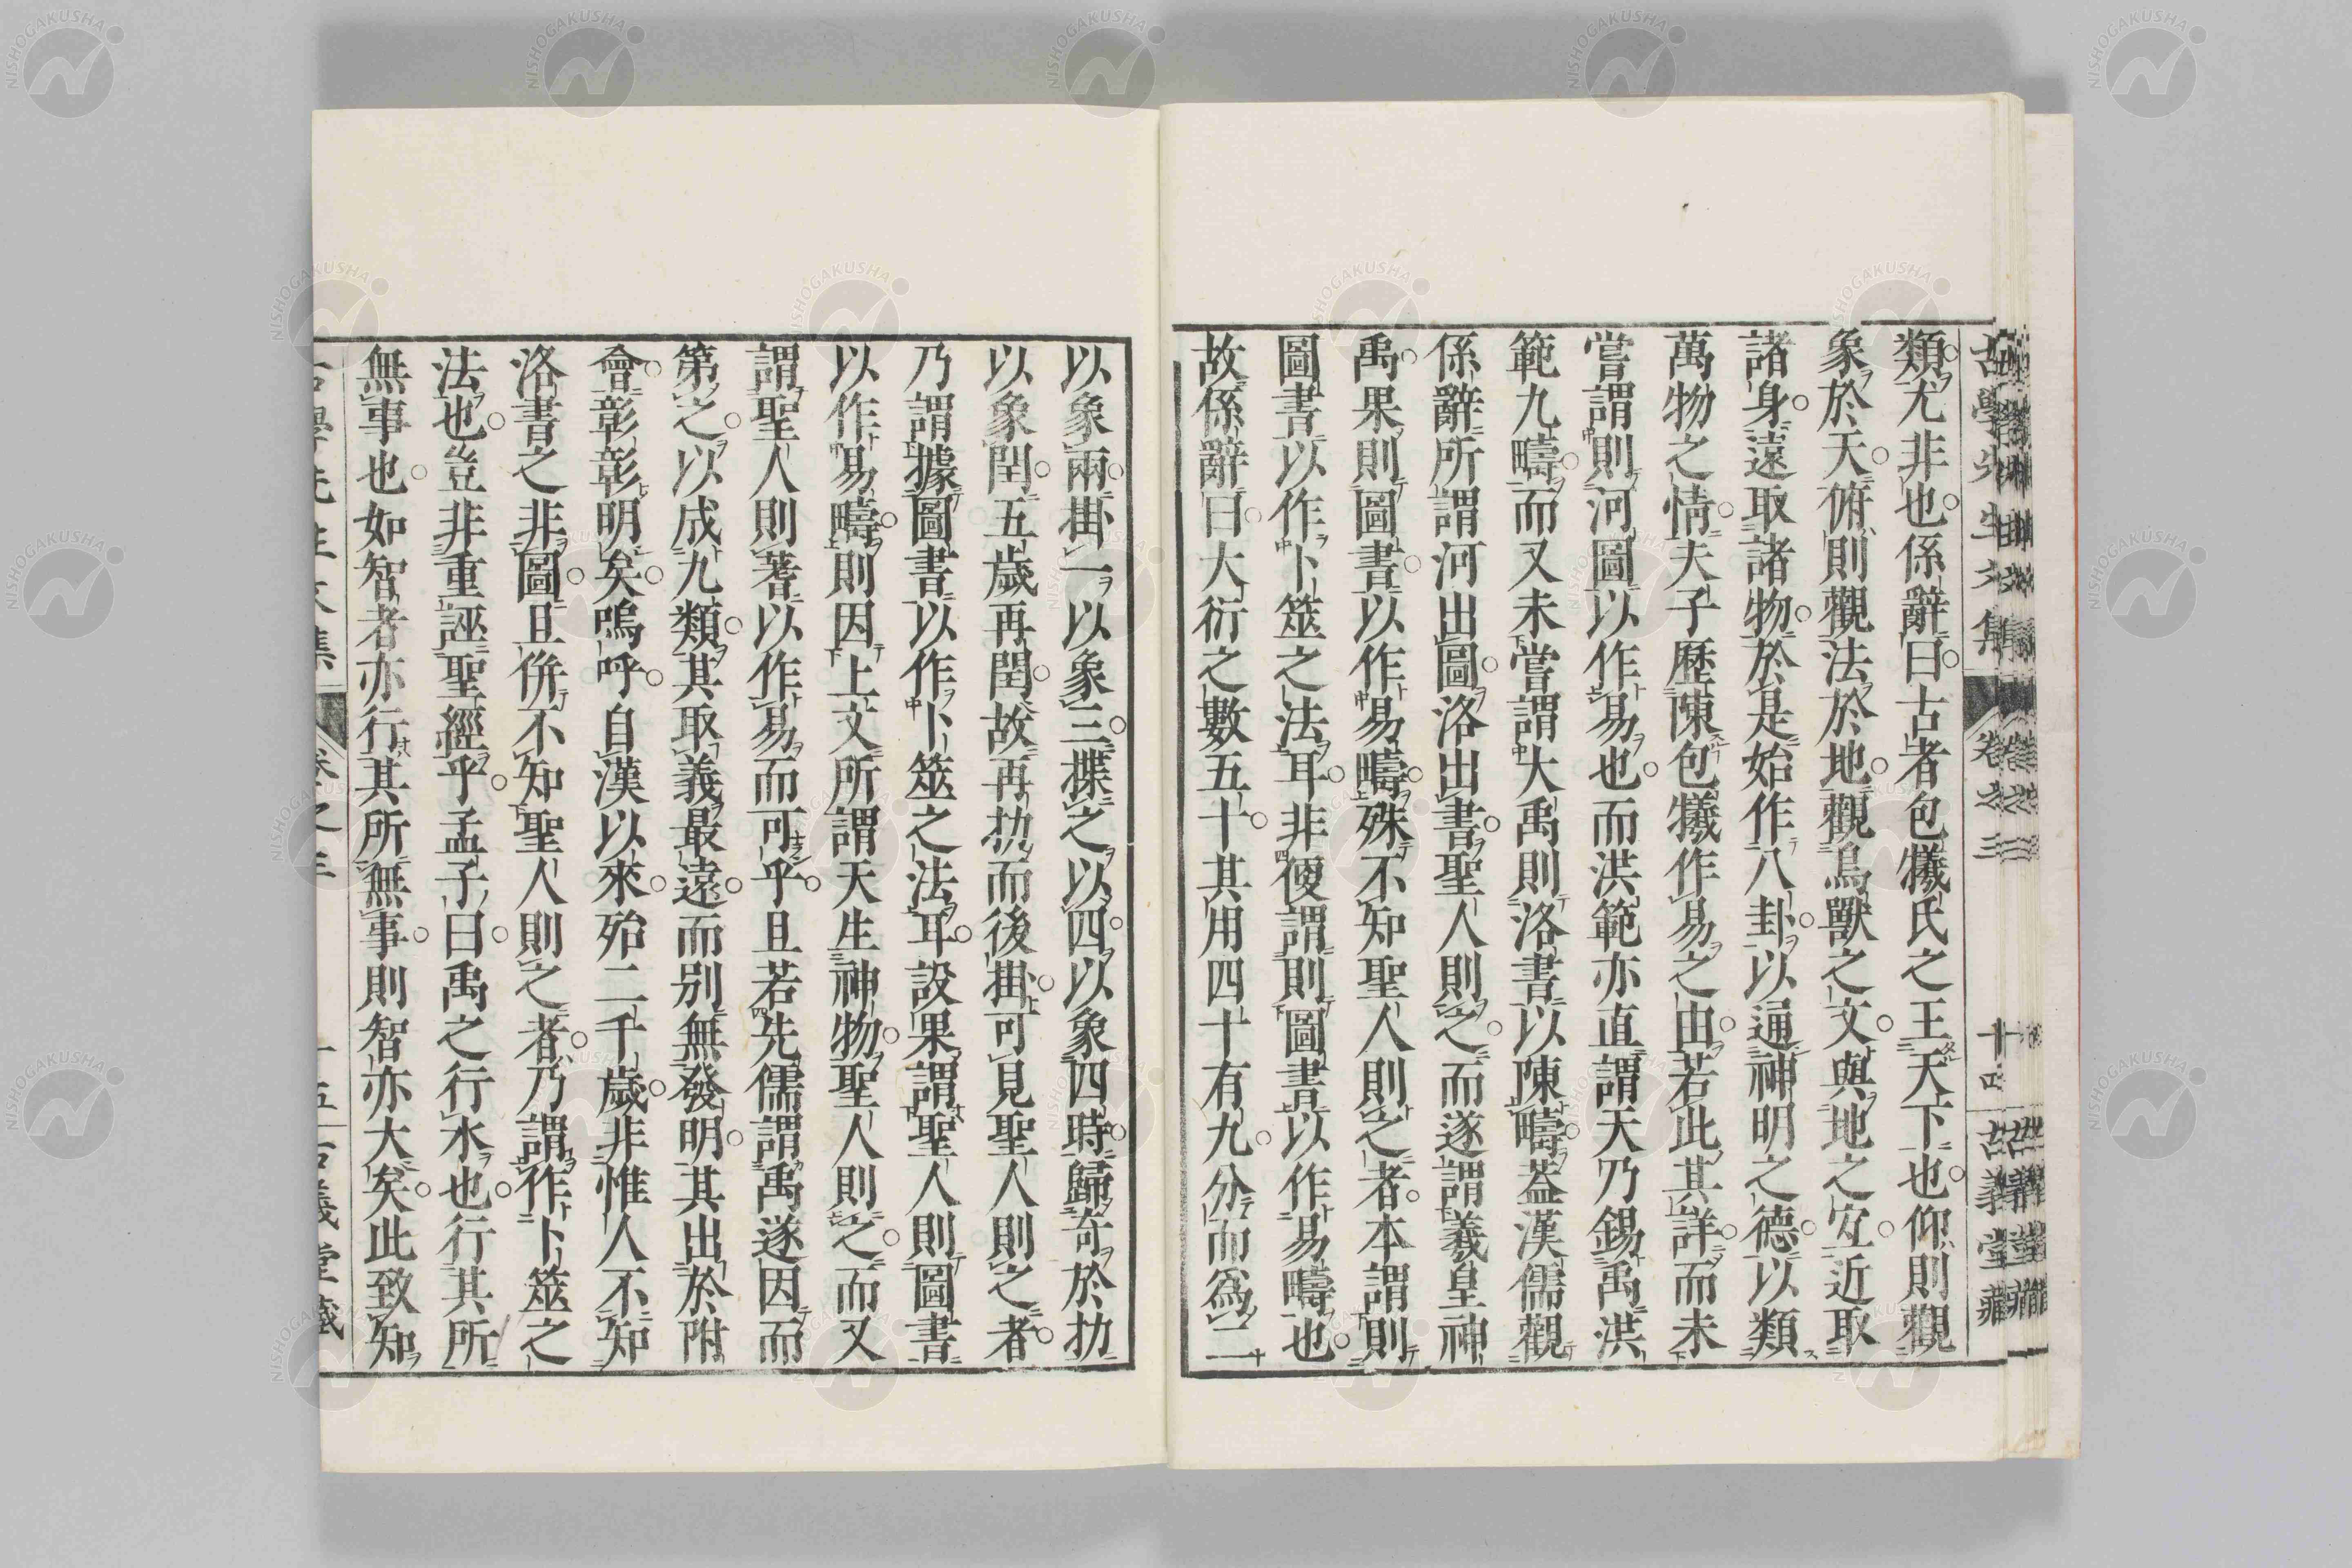 古學先生文集 卷之三 十四 古義堂藏
類尤非也係辭曰古者包犧氏之王天下也仰則觀
象於天俯則觀法於地觀鳥獸之文與地之宜近取
諸身遠取諸物於是始作八卦以通神明之德以類
萬物之情夫子歷陳包犧作易之由若此其詳而未
嘗謂則河圖以作易也而洪範亦直謂天乃錫禹洪
範九疇而又未嘗謂大禹則洛書以陳疇蓋漢儒觀
係辭所謂河出圖洛出書聖人則之而遂謂羲皇神
禹果則圖書以作易疇殊不知聖人則之者本謂則
圖書以作卜筮之法耳非便謂則圖書以作易疇也
故係辭曰大衍之數五十其用四十有九分而爲二
以象兩掛一以象三揲之以四以象四時歸奇於扐
以象閏五歲再閏故再扐而後掛可見聖人則之者
乃謂據圖書以作卜筮之法耳設果謂聖人則圖書
以作易疇則因上文所謂天生神物聖人則之而又
謂聖人則蓍以作易而可乎且若先儒謂禹遂因而
第之以成九類其取義最遠而別無發明其出於附
會彰彰明矣嗚呼自漢以來殆二千歲非惟人不知
洛書之非圖且併不知聖人則之者乃謂作卜筮之
法也豈非重誣聖經乎孟子曰禹之行水也行其所
無事也如智者亦行其所無事則智亦大矣此致知
古學先生文集 卷之三 十五 古義堂藏
NISHOGAKUSHA